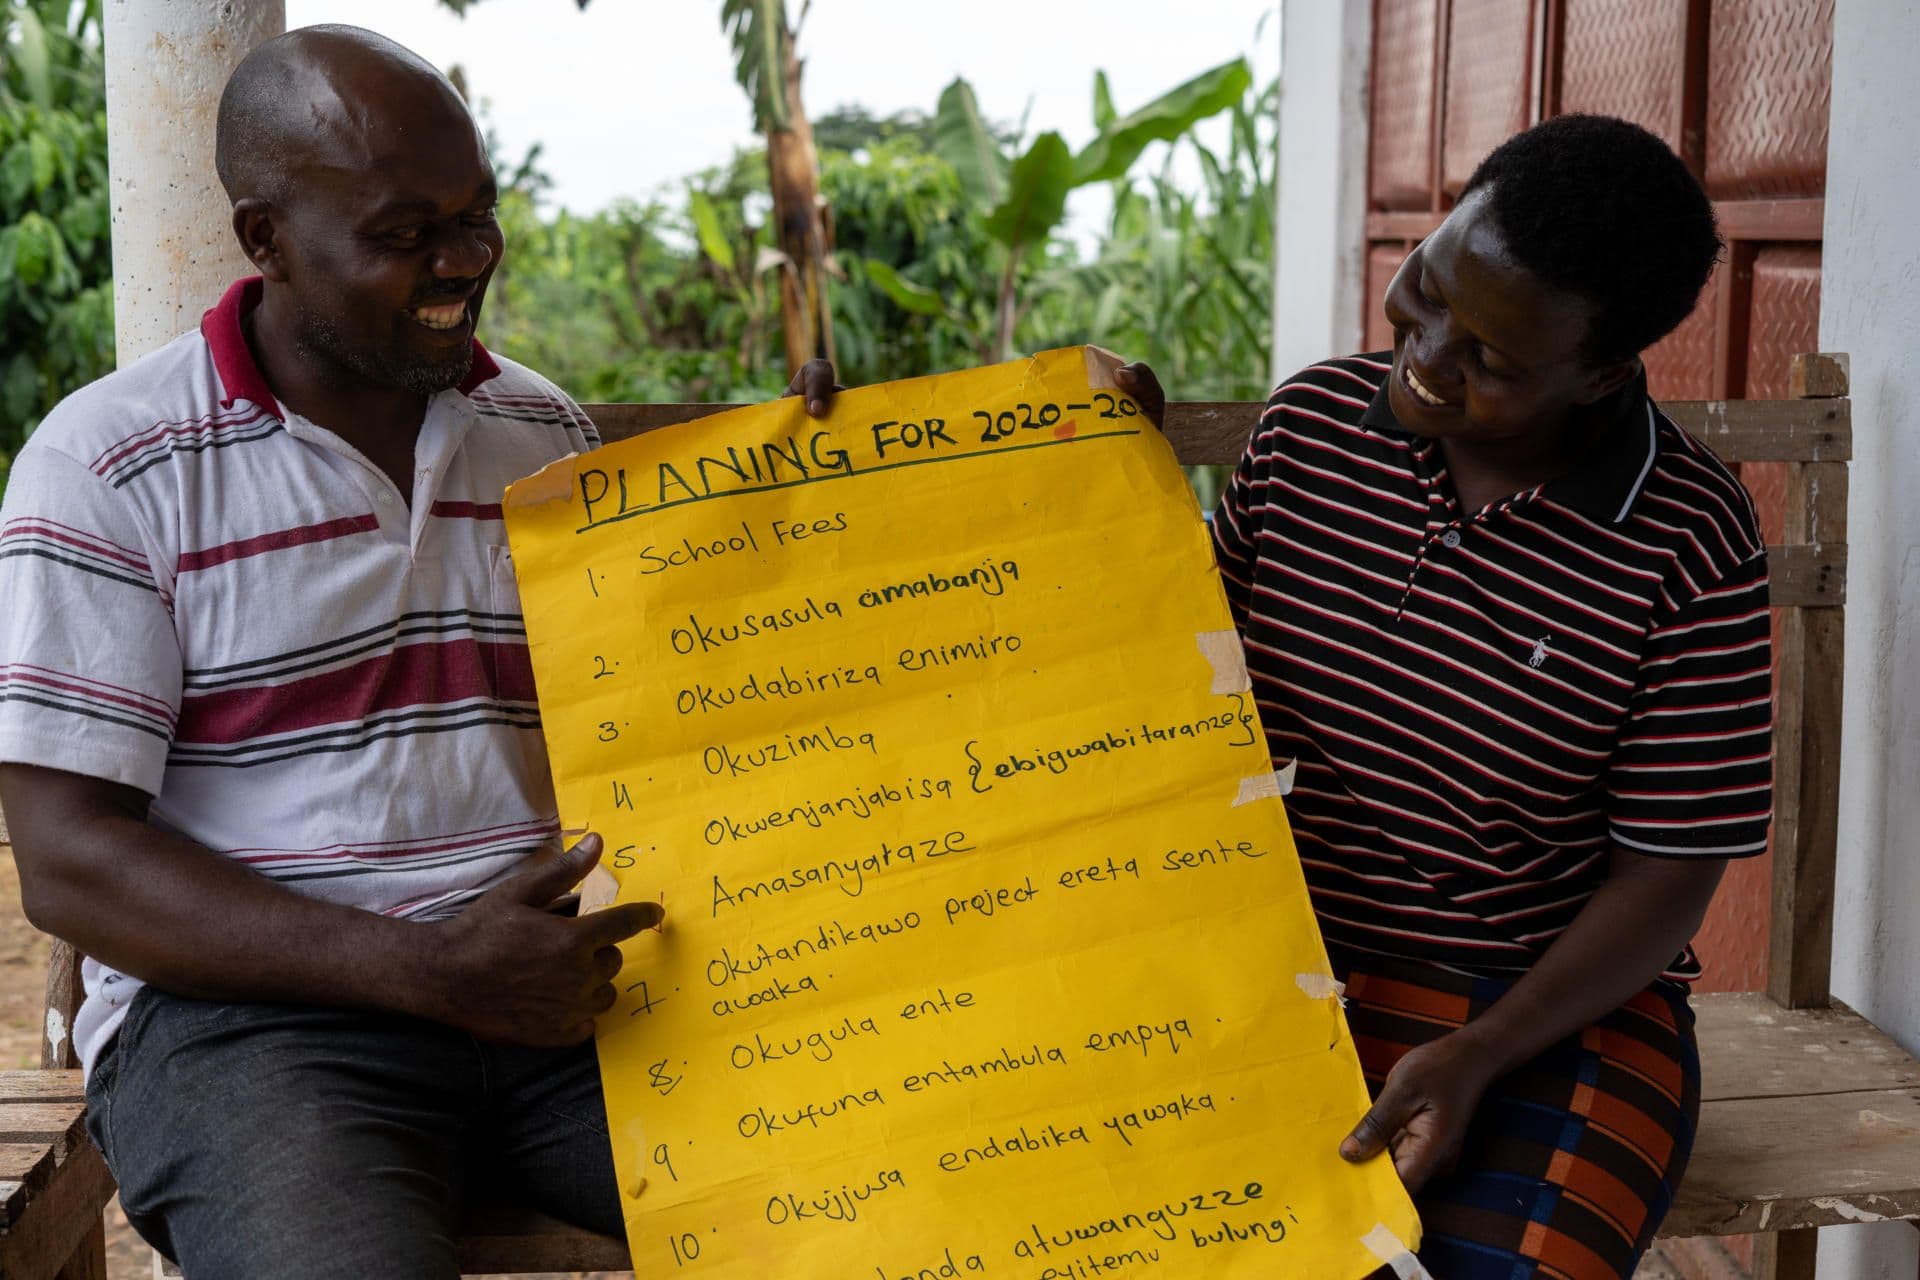 PLANING FOR 2020-20
1. School Fees
2. Okusasula amabanja
3. Okudabiriza enimiro
4. Okuzimba
5. Okwenjanjabisa {ebigwabitaranze}
Amasanyaraze
7. Okutandikawo project ereta sente
awaka.
8. Okugula ente
9. Okufuna entambula empya.
10. Okujjusa endabika yawaka.
atuwanguzze
eyitemu bulungi